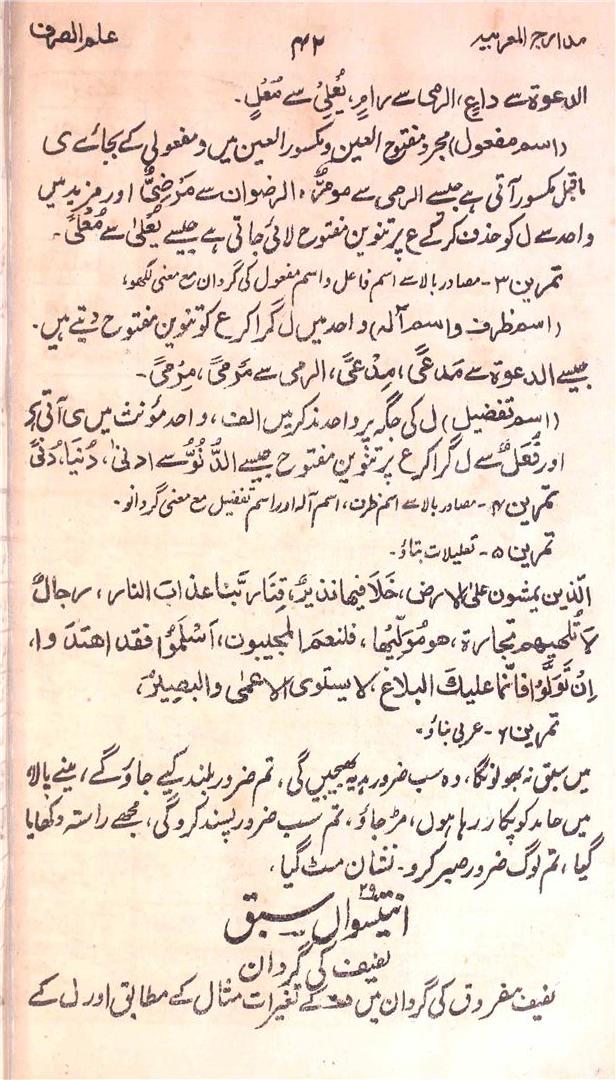 مدارج العربیہ ۴۲ علم الصرف
الدعوة سے داعٍ، الرمی سے رامٍ، یُعلِیْ سے مُعْلٍ۔
(اسم مفعول) مجرد مفتوح العین و مکسور العین میں و مفعولی کے بجائے ی
ماقبل مکسور آتی ہے جیسے الرمی سے مرمِیٌّ، الرضوان سے مَرْضِیٌّ اور مزید میں
واحد سے ل کو حذف کر کے ع پر تنوین مفتوح لائی جاتی ہے جیسے یُعْلیٰ سے مُعْلًی۔
تمرین ۳۔ مصادر بالا سے اسم فاعل و اسم مفعول کی گردان مع معنی لکھو،
(اسم ظرف و اسم آلہ) واحد میں ل گرا کر ع کو تنوین مفتوح دیتے ہیں۔
جیسے الدعوة سے مَدْعًی، مِدْعًی، الرمی سے مَرْمًی، مِرْمًی۔
(اسم تفضیل) ل کی جگہ پر واحد مذکر میں الف، واحد مؤنث میں ی آتی ہے
اور فُعَلٌ سے ل گرا کر ع پر تنوین مفتوح جیسے الدُّنُوُّ سے ادنیٰ، دُنْیَا، دُنًی
تمرین ۴۔ مصادر بالا سے اسم ظرف، اسم آلہ اور اسم تفضیل مع معنی گردانو۔
تمرین ۵۔ تعلیلات بتاؤ۔
الّذین یمشون علی الارض، خَلَا فیھا نذیرٌ، قِنَا رَبَّنا عذابَ النار، رجالٌ
لَا تُلْھِیھم تجارة، ھو مُوَلِّیْھَا، فلنعمَ المجیبون، اَسْلَمُوْا فقد اھتدَوا،
اِنْ تَوَلَّوْا فانّما علیكَ البلاغ، لا یستوی الاعمٰی والبصیرُ،
تمرین ۶۔ عربی بناؤ۔
میں سبق نہ بھولونگا، وہ سب ضرور ہدیہ بھیجیں گی، تم ضرور بلند کیے جاؤ گے، پینے والا
میں حامد کو پکار رہا ہوں، مڑ جاؤ، تم سب ضرور پسند کرو گی، مجھے راستہ دکھایا
گیا، تم لوگ ضرور صبر کرو۔ نشان مٹ گیا،
انتیسواں ۲۹ سبق
لفیف کی گردان
لفیف مفروق کی گردان میں ف کے تغیرات مثال کے مطابق اور ل کے